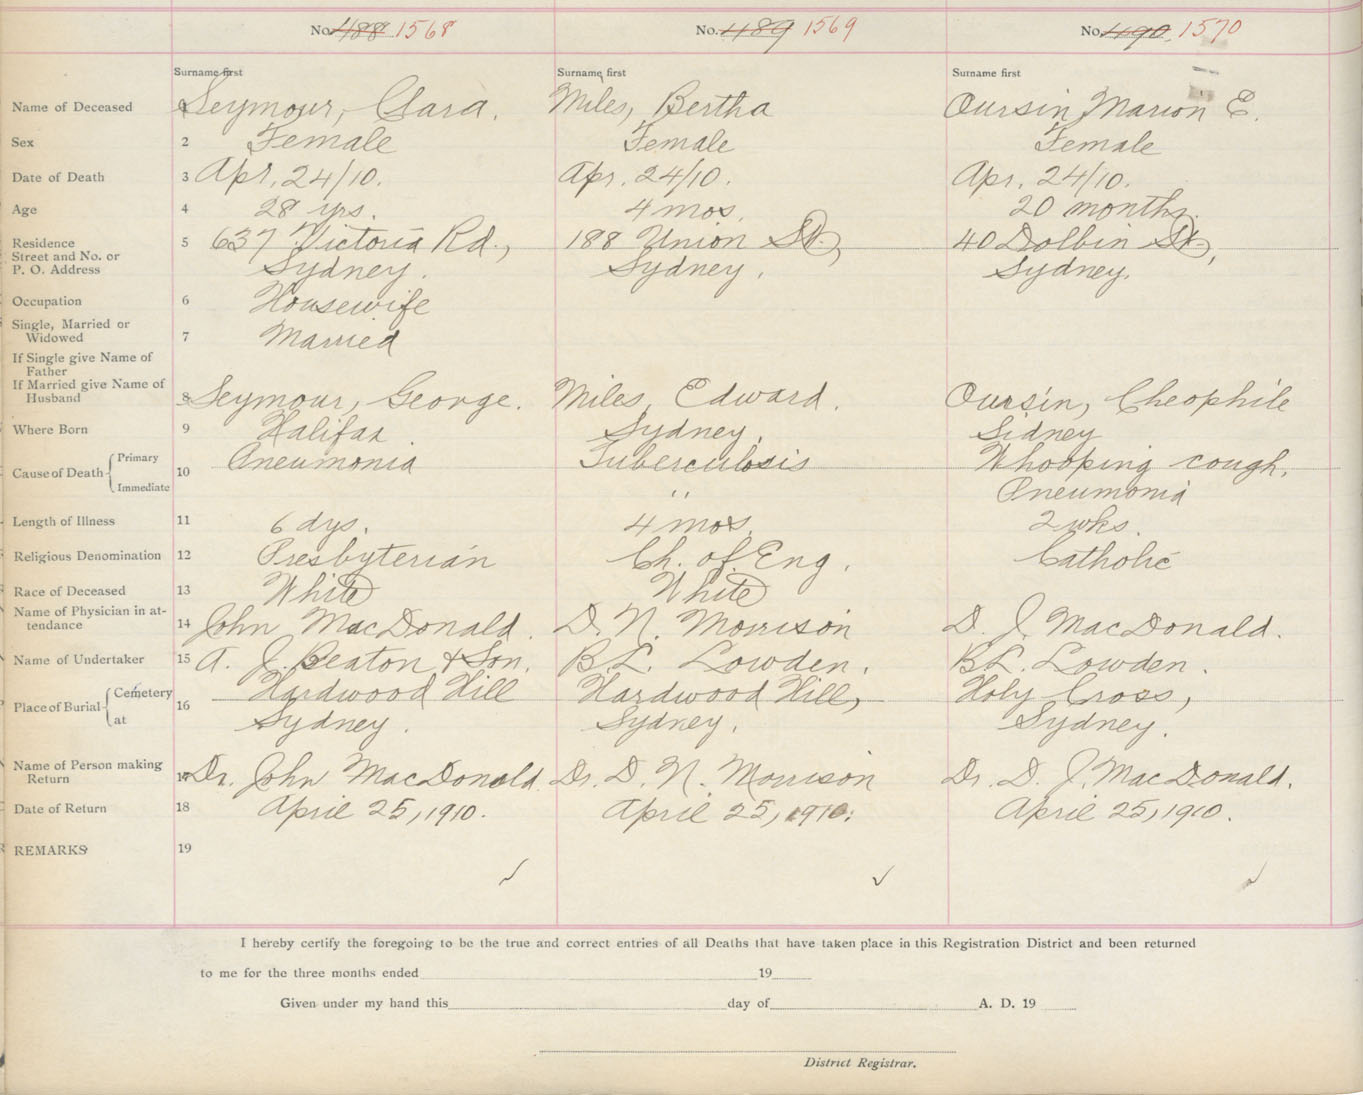 No. 488 1568 No. 489 1569 No. 490 1570
Surname first Surname first Surname first
Name of Deceased 1 Seymour, Clara. Miles, Bertha Oursin, Marion E.
Sex 2 Female Female Female
Date of Death 3 Apr. 24/10. Apr. 24/10. Apr. 24/10.
Age 4 28 yrs. 4 mos. 20 months.
Residence 5 637 Victoria Rd., 188 Union St., 40 Dolbin St.,
Street and No. or
P. O. Address Sydney. Sydney. Sydney.
Occupation 6 Housewife
Single, Married or
Widowed 7 Married
If Single give Name of
Father
If Married give Name of
Husband 8 Seymour, George. Miles, Edward. Oursin, Cheophile
Where Born 9 Halifax. Sydney. Sidney
Cause of Death Primary 10 Pneumonia Tuberculosis Whooping cough.
Immediate " Pneumonia
Length of Illness 11 6 dys. 4 mos. 2 wks.
Religious Denomination 12 Presbyterian Ch. of Eng. Catholic
Race of Deceased 13 White White
Name of Physician in at-
tendance 14 John MacDonald. D. N. Morrison D. J. MacDonald.
Name of Undertaker 15 A. J. Beaton & Son. B. L. Lowden. B. L. Lowden.
Place of Burial Cemetery 16 Hardwood Hill Hardwood Hill, Holy Cross,
at Sydney. Sydney. Sydney.
Name of Person making
Return 17 Dr. John MacDonald. Dr. D. N. Morrison Dr. D. J. MacDonald.
Date of Return 18 April 25, 1910. April 25, 1910. April 25, 1910.
REMARKS 19
I hereby certify the foregoing to be the true and correct entries of all Deaths that have taken place in this Registration District and been returned
to me for the three months ended 19
Given under my hand this day of A. D. 19
District Registrar.